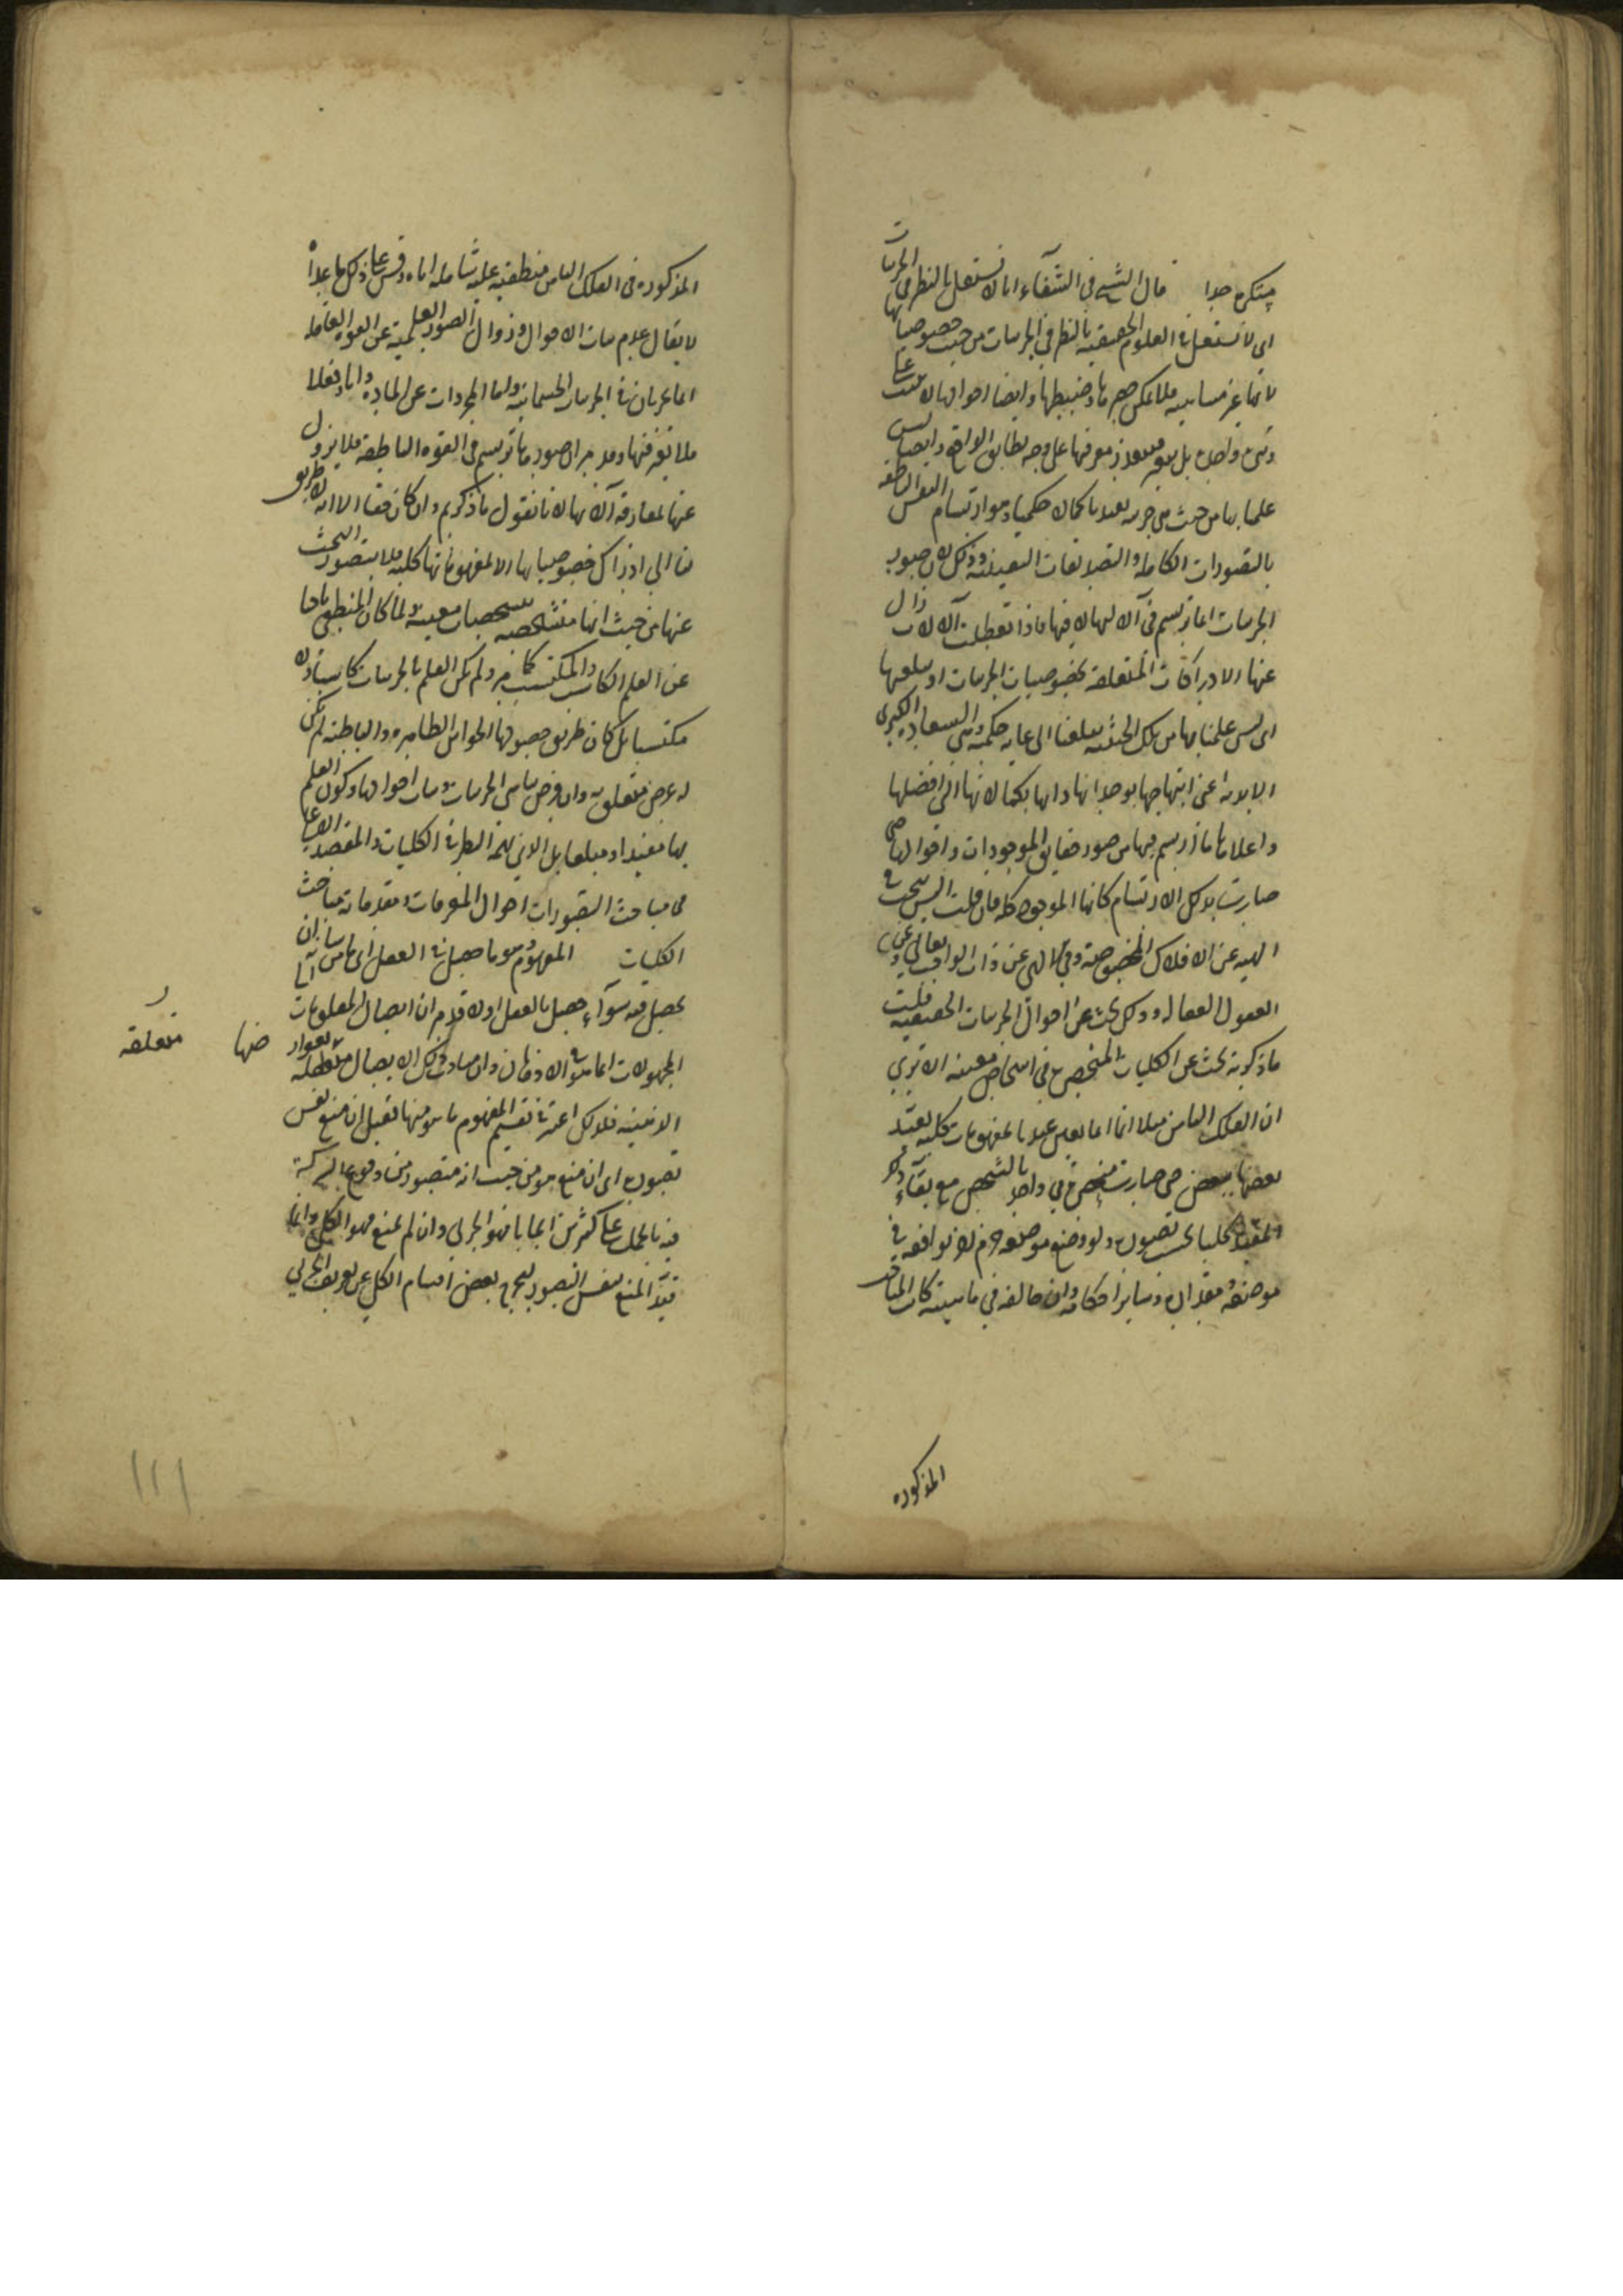 مستكره جدا قال الشيخ في الشفاء انا لا نشتغل بالنظر في الجزئيات
اى لا نشتغل في العلوم الحقيقية بالنظر في الجزئيات من حيث خصوصياتها
لانها غير متناهية فلا يمكن حصرها وضبطها وايضا احوالها لا تثبت على
وتيرة واحدة بل يتعذر معرفتها على وجه يطابق الواقع وايضا ليس
علمنا بها من حيث هي جزئية يفيدنا كمالا حكميا وهو ارتسام النفس الناطقة
بالتصورات الكاملة والتصديقات اليقينية وذلك لان صور
الجزئيات انما ترتسم في آلاتها لا فيها فاذا تعطلت آلالات زال
عنها الادراكات المتعلقة بخصوصيات الجزئيات او يبلغها
اى ليس علمنا بها من تلك الحيثية يبلغنا الى غاية حكمية وهي السعادة الكبرى
الابدية اعنى ابتهاجها بوجدانها ذاتها بكمالاتها التى افضلها
واعلاها ما ارتسم فيها من صور حقايق الموجودات واحوالها حتى
صارت بذلك الارتسام كانها الموجود كله فان قلت اليس يبحث في
الهيئة عن الافلاك المخصوصة وفي الالهى عن ذات الواجب تعالى وعن
العقول الفعالة وذلك بحث عن احوال الجزئيات الحقيقية قلت
ما ذكرته بحث عن الكليات المنحصرة في اشخاص معينة الا ترى
ان الفلك الثامن مثلا انما يعبر عنه بمفهومات كلية تقيد
بعضها ببعض حتى صارت منحصرة في واحد بالشخص مع بقاء ذلك
المقيد كليا بحسب تصوره ولو وضع موضعه جرم آخر يوافقه في
موضعه ومقداره وساير احكامه وان خالفه في ماهيته كانت المباحث
المذكورة
المذكورة في الفلك الثامن منطبقة عليه شاملة اياه وقس على ذلك ما عداه
لا يقال عدم ثبات الاحوال وزوال الصور العلمية عن القوة العاقلة
انما يجريان في الجزئيات الجسمانية واما المجردات عن المادة وآثارها فلا
فلا تغير فيها ولا من الصور ما ترتسم في القوة الناطقة فلا يزول
عنها بمفارقة آلاتها لانا نقول ما ذكرتم وان كان حقا الا انه لا طريق
لنا الى ادراك خصوصياتها الا بمفهوماتها كلية فلا يتصور البحث
عنها من حيث انها متشخصة بتشخصات معينة ولما كان المنطقى باحثا
عن العلم الكاسب والمكتسب كما مر ولم يكن العلم بالجزئيات كاسبا ولا
مكتسبا بل كان طريق حصولها الحواس الظاهرة والباطنة لم يكن
له غرض متعلق به وان فرض تناهى الجزئيات وثبات احوالها وكون العلم
بها مفيدا ومبلغا
في مباحث التصورات احوال المعرفات ومقدماته مباحث
الكليات المفهوم وهو ما حصل في العقل اى ما من شانه ان
يحصل فيه سواء حصل بالفعل او لا قدم ان ايصال المعلومات
المجهولات انما هو في الاذهان وان مبادى ذلك الايصال متعلقة
الذهنية فلذلك اعتبر في تقسيم المفهوم ما هو منها فقيل ان منع نفس
تصوره اى ان منع هو من حيث انه متصور من وقوع الشركة
فيه بالحمل على كثيرين ايجابا فهو الجزئى وان لم يمنع فهو الكلى وانما
قيد المنع بنفس التصور ليخرج بعض اقسام الكلى عن تعريف الجزئى
ضها متعلقه
١١١